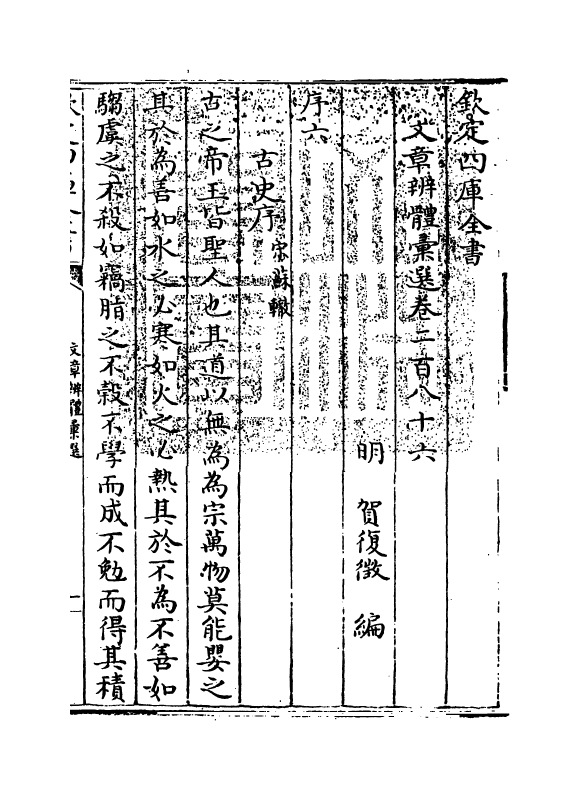 欽定四庫全書
文章辨體彙選卷二百八十六
明 賀復徵 編
序六
古史序 宋蘇轍
古之帝王皆聖人也其道以無為為宗萬物莫能嬰之
其於為善如水之必寒如火之必熱其於不為不善如
騶虞之不殺如竊脂之不穀不學而成不勉而得其積
文章辨體彙選
一